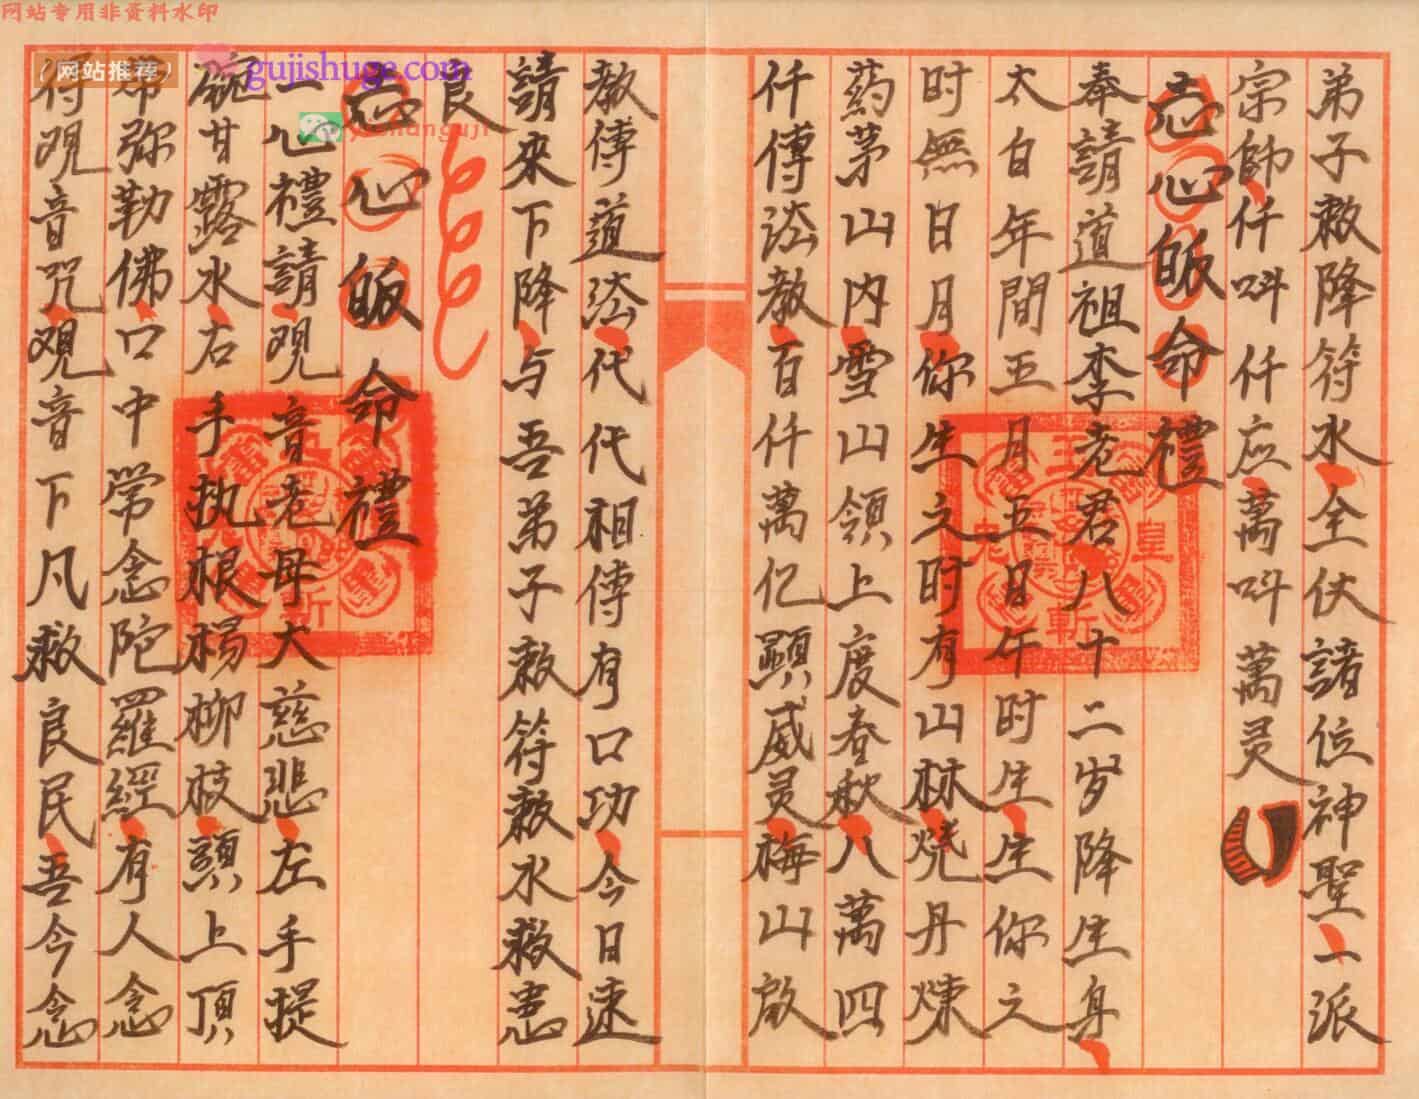 网站专用非资料水印
(网站推荐)
gujishuge.com
弟子敕降符水全仗諸位神聖一派
宗師仟叫仟应萬叫萬灵
志心皈命禮
奉請道祖李老君八十二岁降生身
太白年間五月五日午时生生你之
时無日月你生之时有山林烧丹煉
药茅山内雪山領上度春秋八萬四
仟傳法教百仟萬亿顕威灵梅山啟
教傳道法代代相傳有口功今日速
請來下降与吾弟子敕符敕水救患
良
志心皈命禮
一心禮請观音老母大慈悲左手提
瓶甘露水右手执根楊柳枝頭上頂
帶弥勒佛口中常念陀羅經有人念
得观音咒观音下凡救良民吾今念